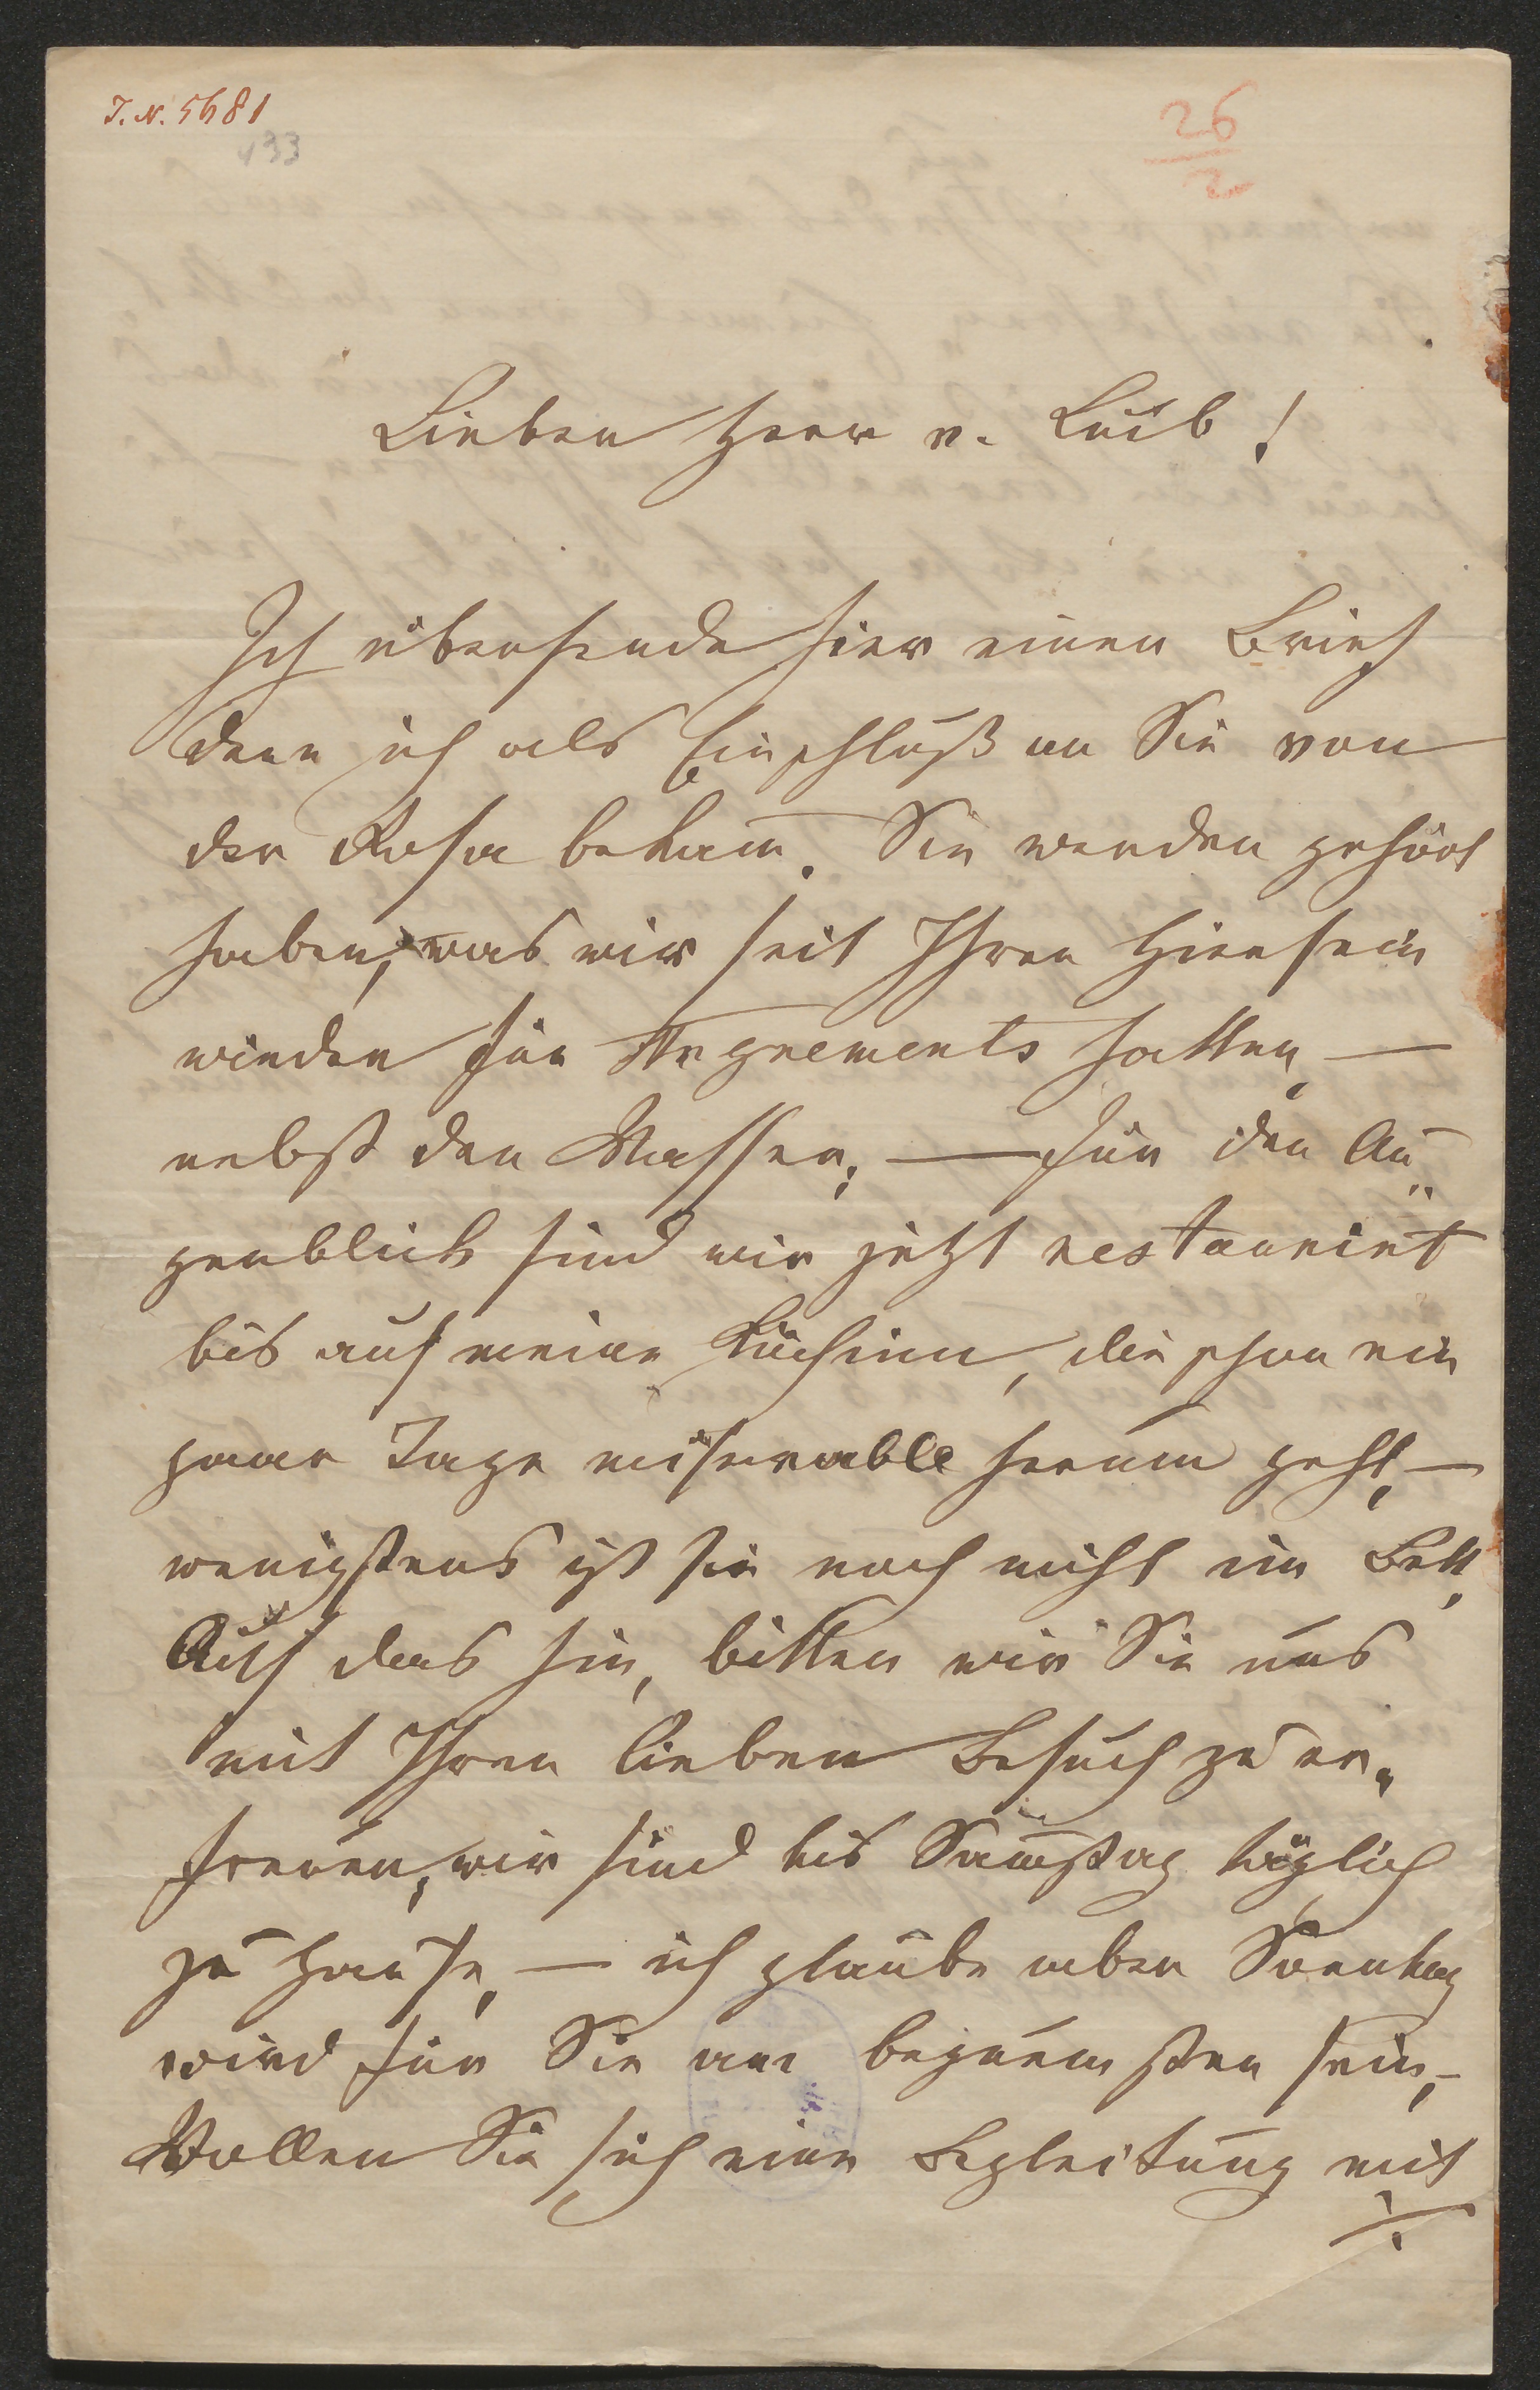 I. N. 5681
133
26
2
Lieber Herr v. Luib!
Ich übersende hier einen Brief
denn ich als Einschluß an Sie von
der Rosa bekam̄. Sie werden gehört
haben, was wir seit Ihren Hiersein
wieder für Agrements hatten, —
nebst den Wasser; — für den Au„
genblick sind wir jetzt restaurirt
bis auf meine Köchinn, die schon ein
paar Tage miserable herum geht, —
wenigstens ist sie noch nicht im Bett,
Auf das hin, bitten wir Sie uns
mit Ihren lieben Besuch zu er„
freuen, wir sind bis Sam̄stag täglich
zu Hause, — ich glaube aber Sonntag
wird für Sie am bequemsten sein, –
Wollen Sie sich eine Begleitung mit
./.